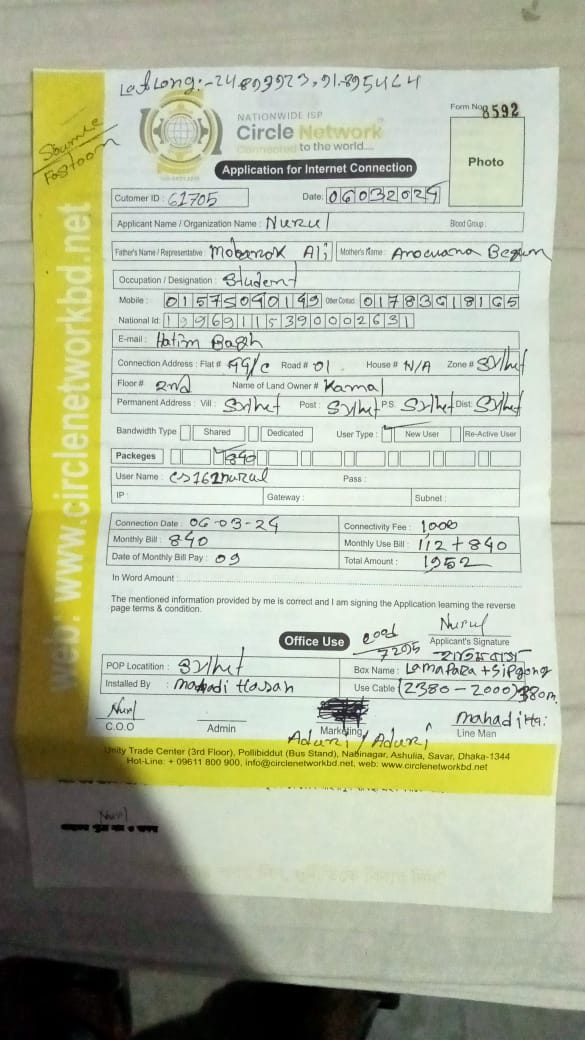 Lat Long:-24.899923, 91.895464
NATIONWIDE ISP
Circle Network
Connected to the world....
Form No: 8592
Photo
Application for Internet Connection
Cutomer ID : 61705 Date: 06032024
Applicant Name / Organization Name : Nurul Blood Group :
Father's Name / Representative : Mobarok Ali Mother's Name : Anowara Begum
Occupation / Designation : Student
Mobile : 01575090149 Other Contact 01783618165
National Id: 19969115390002631
E-mail : Hatim Bagh
Connection Address : Flat # 49/c Road # 01. House # N/A Zone # Sylhet
Floor # 2nd Name of Land Owner # Kamal
Permanent Address : Vill : Sylhet Post : Sylhet P.S. Sylhet Dist: Sylhet
Bandwidth Type Shared Dedicated User Type : New User Re-Active User
Packeges 840
User Name : cs162nurul Pass :
IP : Gateway : Subnet :
Connection Date : 06-03-24 Connectivity Fee : 1000
Monthly Bill : 840 Monthly Use Bill : 112 + 840
Date of Monthly Bill Pay : 09 Total Amount : 1952
In Word Amount :
The mentioned information provided by me is correct and I am signing the Application learning the reverse
page terms & condition.
Nurul
Applicant's Signature
Office Use
POP Locatition : Sylhet Box Name : Lamapara + Sipgong
Installed By : mahadi Hasan Use Cable (2380-2000) 380m
Nurul
C.O.O Admin Marketing Line Man
Unity Trade Center (3rd Floor), Pollibiddut (Bus Stand), Nabinagar, Ashulia, Savar, Dhaka-1344
Hot-Line: + 09611 800 900, info@circlenetworkbd.net, web: www.circlenetworkbd.net
web: www.circlenetworkbd.net
Nurul